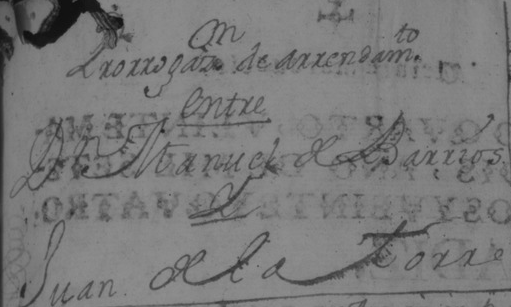 Prorrogaᵒⁿ de arrendamᵗᵒ
Entre
Dⁿ Manuel de Barrios
Y
Juan de la Torre